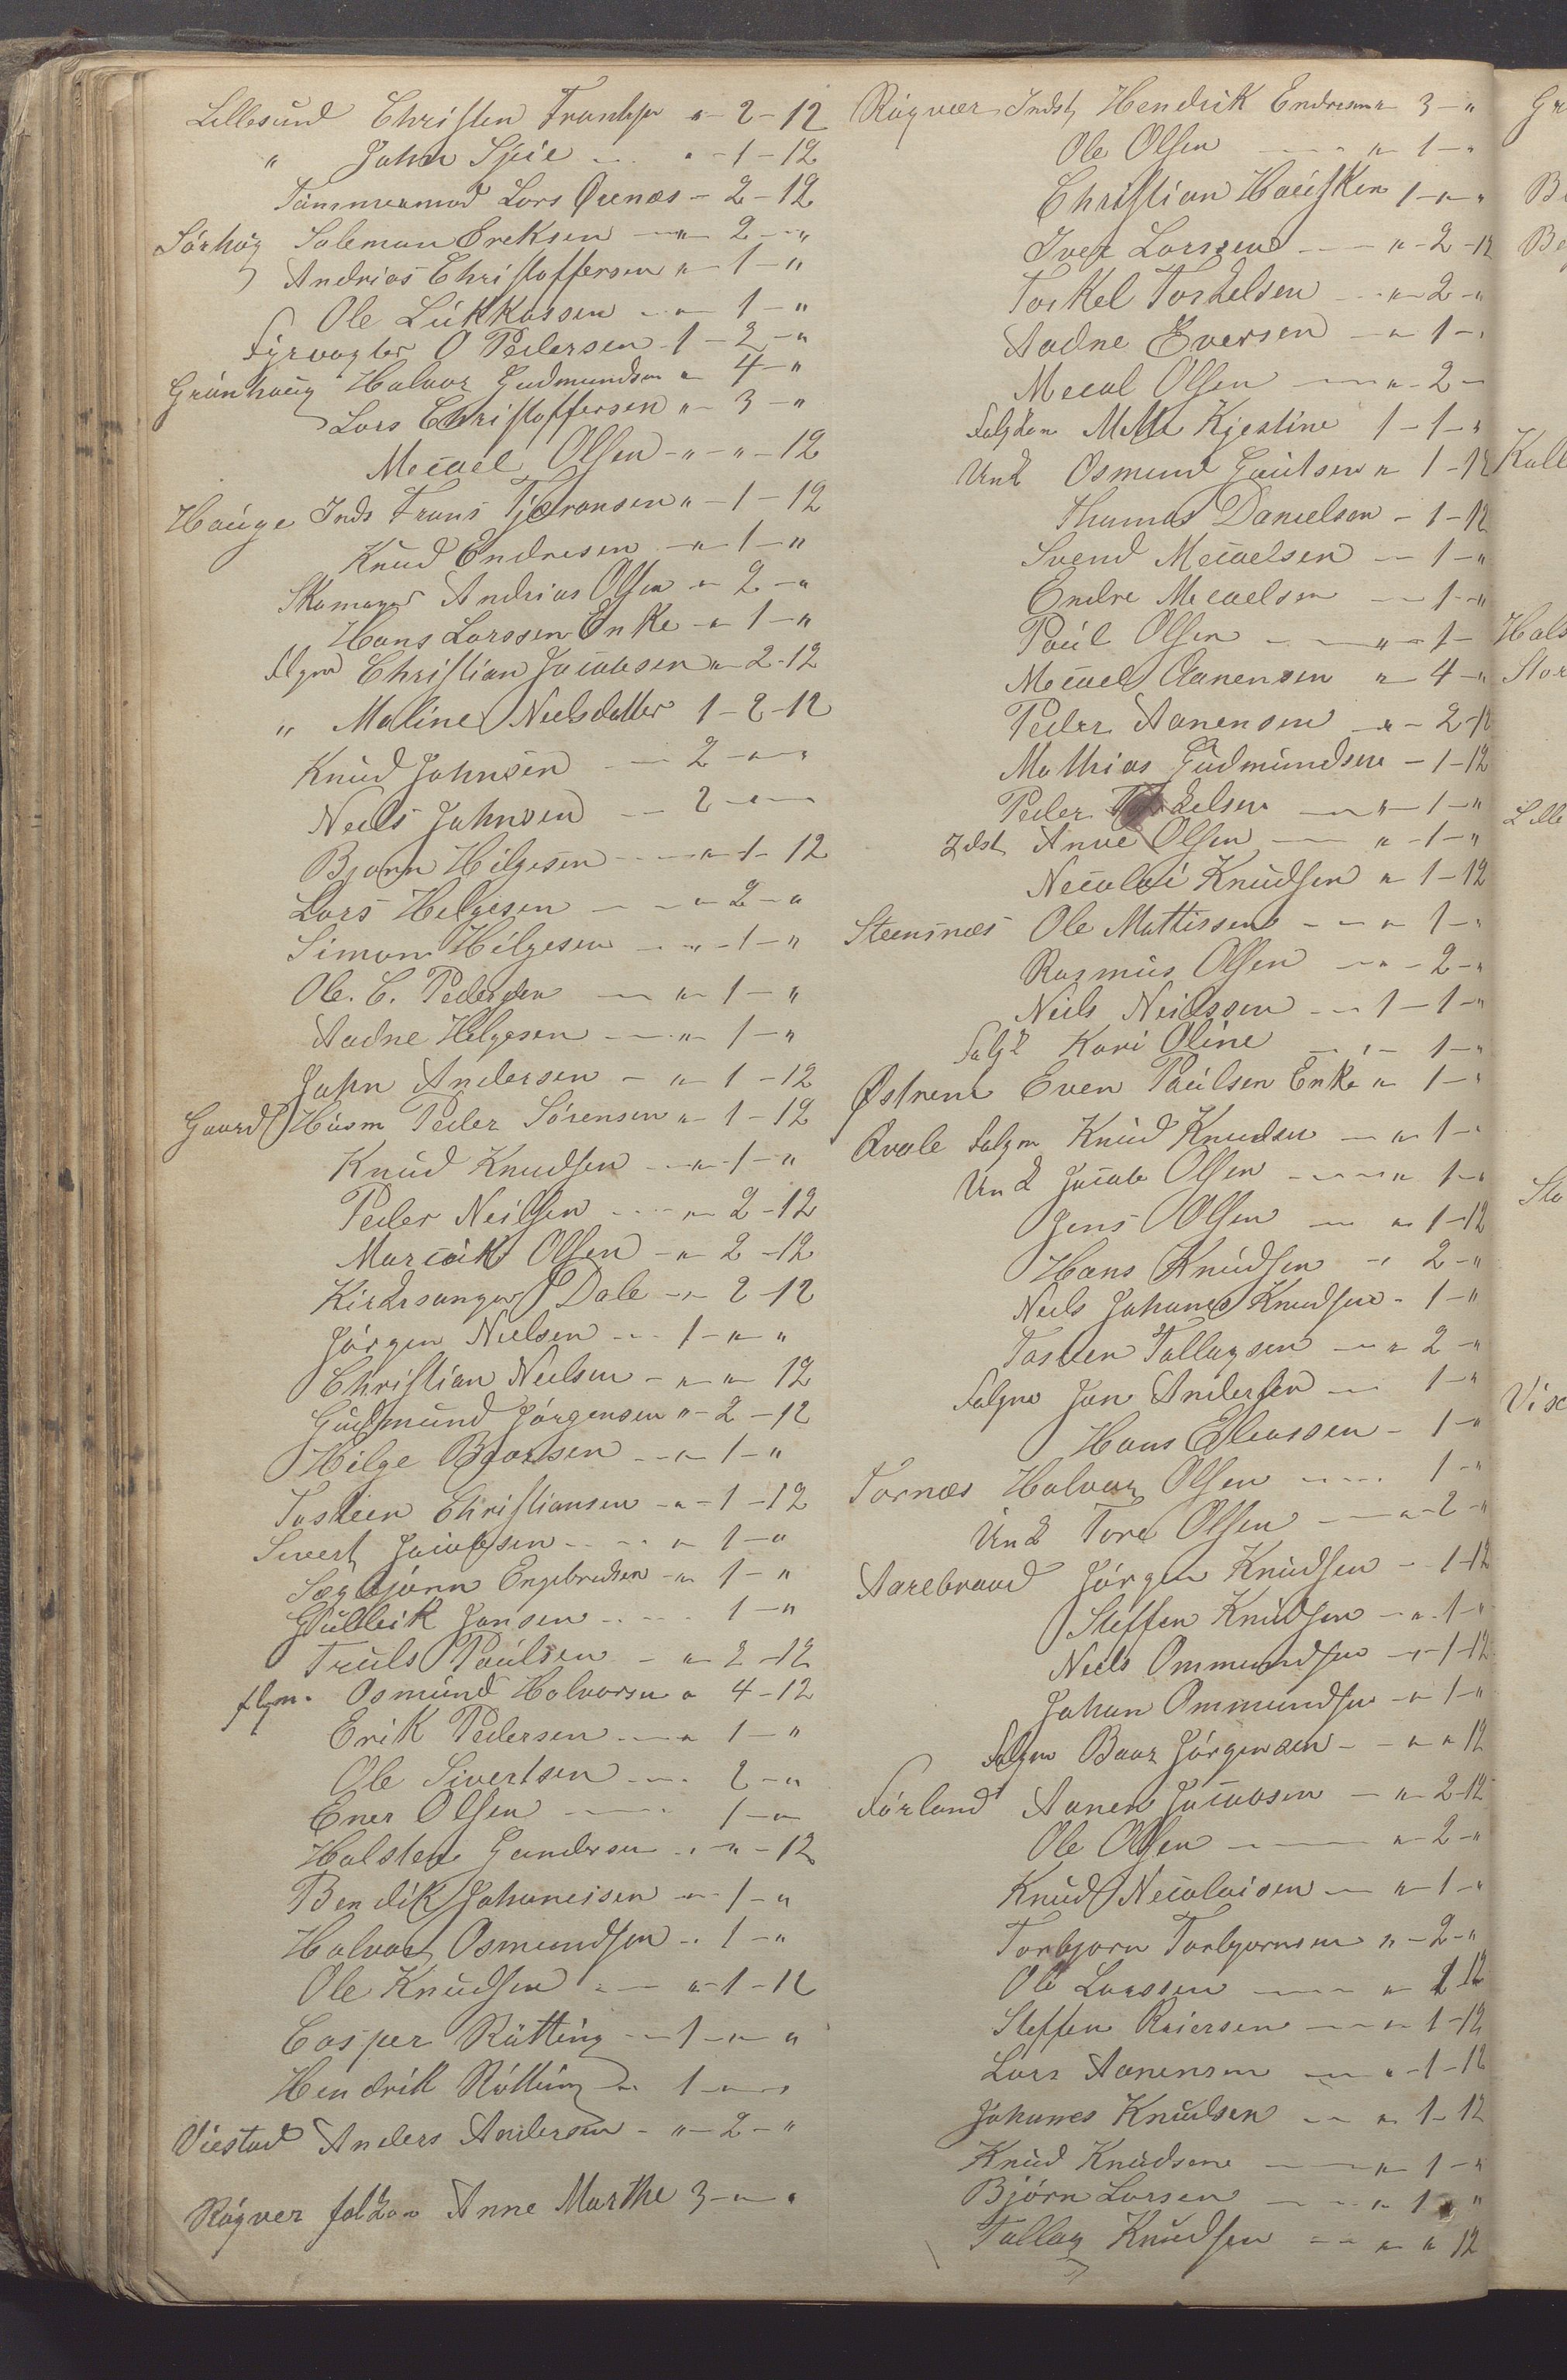 Lillesund Christen " - 2 - 12
" John Spie " - 1 - 12
Lars Qvenæs - 2 - 12
Sørhøg Soleman Ereksen - " - 2 - "
Andrias Christoffersen " - 1 - "
Ole Lukkassen - " - 1 - "
Fyrvogter O Pedersen - 1 - 2 - "
Grønhaug Halvor Gudmundsen " 4 - "
Lars Christoffersen " - 3 - "
Meicael Olsen - " - " - 12
Hauge Inds Frans Tjøransen " - 1 - 12
Knud Endresen - " - 1 - "
Skomager Andrias Olsen " 2 - "
Hans Larssen Enke - " 1 - "
flgm Christian Jacobsen " 2 - 12
" Maline Neelsdatter 1 - 2 - 12
Knud Johnsen - 2 - " - "
Neels Johnsen - 2 - " -
Bjørn Hilgesen - " - 1 - 12
Lars Helgesen - " - 2 - "
Simon Hilgesen - " - 1 - "
Ole. C. Pedersen - " 1 - "
Aadne Helgesen - " 1 - "
John Andersen - " 1 - 12
Gaard Husm Peder Sörensen " - 1 - 12
Knud Knudsen - " - 1 - "
Peder Neilsen - " 2 - 12
Olsen - " 2 - 12
Kirkesanger P Dale - " - 2 - 12
Jörgen Nielsen - 1 - " - "
Christian Neelsen - " - " 12
Gudmund Jörgensen " - 2 - 12
Hilge - " 1 - "
Tosteen Christiansen - " - 1 - 12
Sivert Jacobsen - " 1 - "
Engebredsen - " 1 - "
Gulleik Jansen - 1 - "
Truls Paulsen - " 2 - 12
flgm. Osmund Halvorsen " 4 - 12
Erik Pedersen - " 1 - "
Ole Sivertsen - 2 - "
Ener Olsen - 1 - "
Halsten Gundersen - " - 12
Bendik Johaneisen - " - 1 - "
Halvor Osmundsen - 1 - "
Ole Knudsen - " - 1 - 12
Casper Rötting - 1 - " - "
Hendrik Rötting " 1 - " - "
Viestad Anders Andersen - " - 2 - "
Røgver Anne Marthe 3 - " - "
Røgvær Indst Hendrik Endresen " 3 - "
Ole Olsen - " 1 - "
Christian Hausken 1 - " - "
Iver Larssen - " - 2 - 12
Torkel Torkelsen - " - 2 - "
Aadne Eversen - " 1 - "
Mecal Olsen - " - 2 -
Mette Kjestine 1 - 1 - "
Und Osmund Gautsen " 1 - 12
Thomas Danielsen - 1 - 12
Svend Meicaelsen - 1 - "
Endre Mecaelsen - 1 - "
Paul Olsen - " - 1 -
Meicael Aanensen " 4 - "
Peder Aanensen - " - 2 - 12
Mathias Gudmundsen - 1 - 12
Peder - " - 1 - "
Idst Olsen - " - 1 - "
Necolai Knudsen " 1 - 12
Steensnæs Ole Mattissen - " 1 - "
Rasmus Olsen - " - 2 - "
Neils Neilssen - 1 - 1 - "
Kari Oline - " - 1 - "
Østrem Even Paulsen Enke " 1 - "
Qvale Falgm Knud Knudsen - " 1 - "
Und Jacob Olsen - " 1 - "
Jens Olsen - " 1 - 12
Hans Knudsen - " 2 - "
Neels Johannes Knudsen - 1 - "
Tosten Tallagsen - " 2 - "
Falgm Jan Andersen - 1 - "
Hans Eleassen - 1 - "
Tornæs Halvor Olsen - 1 - "
Und Tore Olsen - " - 2 - "
Aarebraad Jörgen Knudsen - 1 - 12
Steffen Knudsen - " - 1 - "
Neels Ommundsen - " - 1 - 12
Johan Ommundsen - " 1 - "
Falgm Jörgensen - " " 12
Förland Aanen Jacobsen - " 2 - 12
Ole Olsen - " - 2 - "
Knud Necolaisen - " 1 - "
Torbjorn Torbjornsen " - 2 - "
Ole Larssen - " 2 12
Steffen Reiersen - " 1 - 12
Lars Aanensen - " - 1 - 12
Johanes Knudsen - " 1 - 12
Knud Knudsen - " 1 - "
Björn Larsen - " 1 "
Tallag Knudsen - " " 12